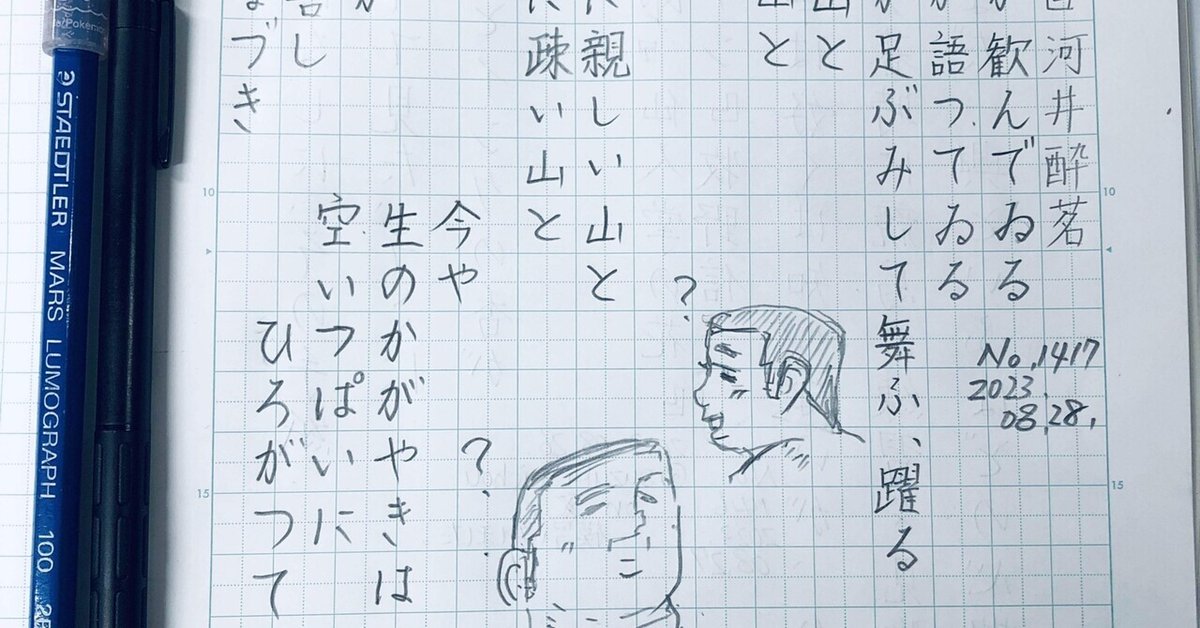 河井酔茗
が歓んでゐる
が語つてゐる
が足ぶみして舞ふ、躍る
山と
山と
に親しい山と
に疎い山と
今や
生のかがやきは
空いつぱいに
ひろがつて
し
づき
No.1417
2023.
08.28.
?
?
10
15
10
15
Pokémon
STAEDTLER MARS LUMOGRAPH 100